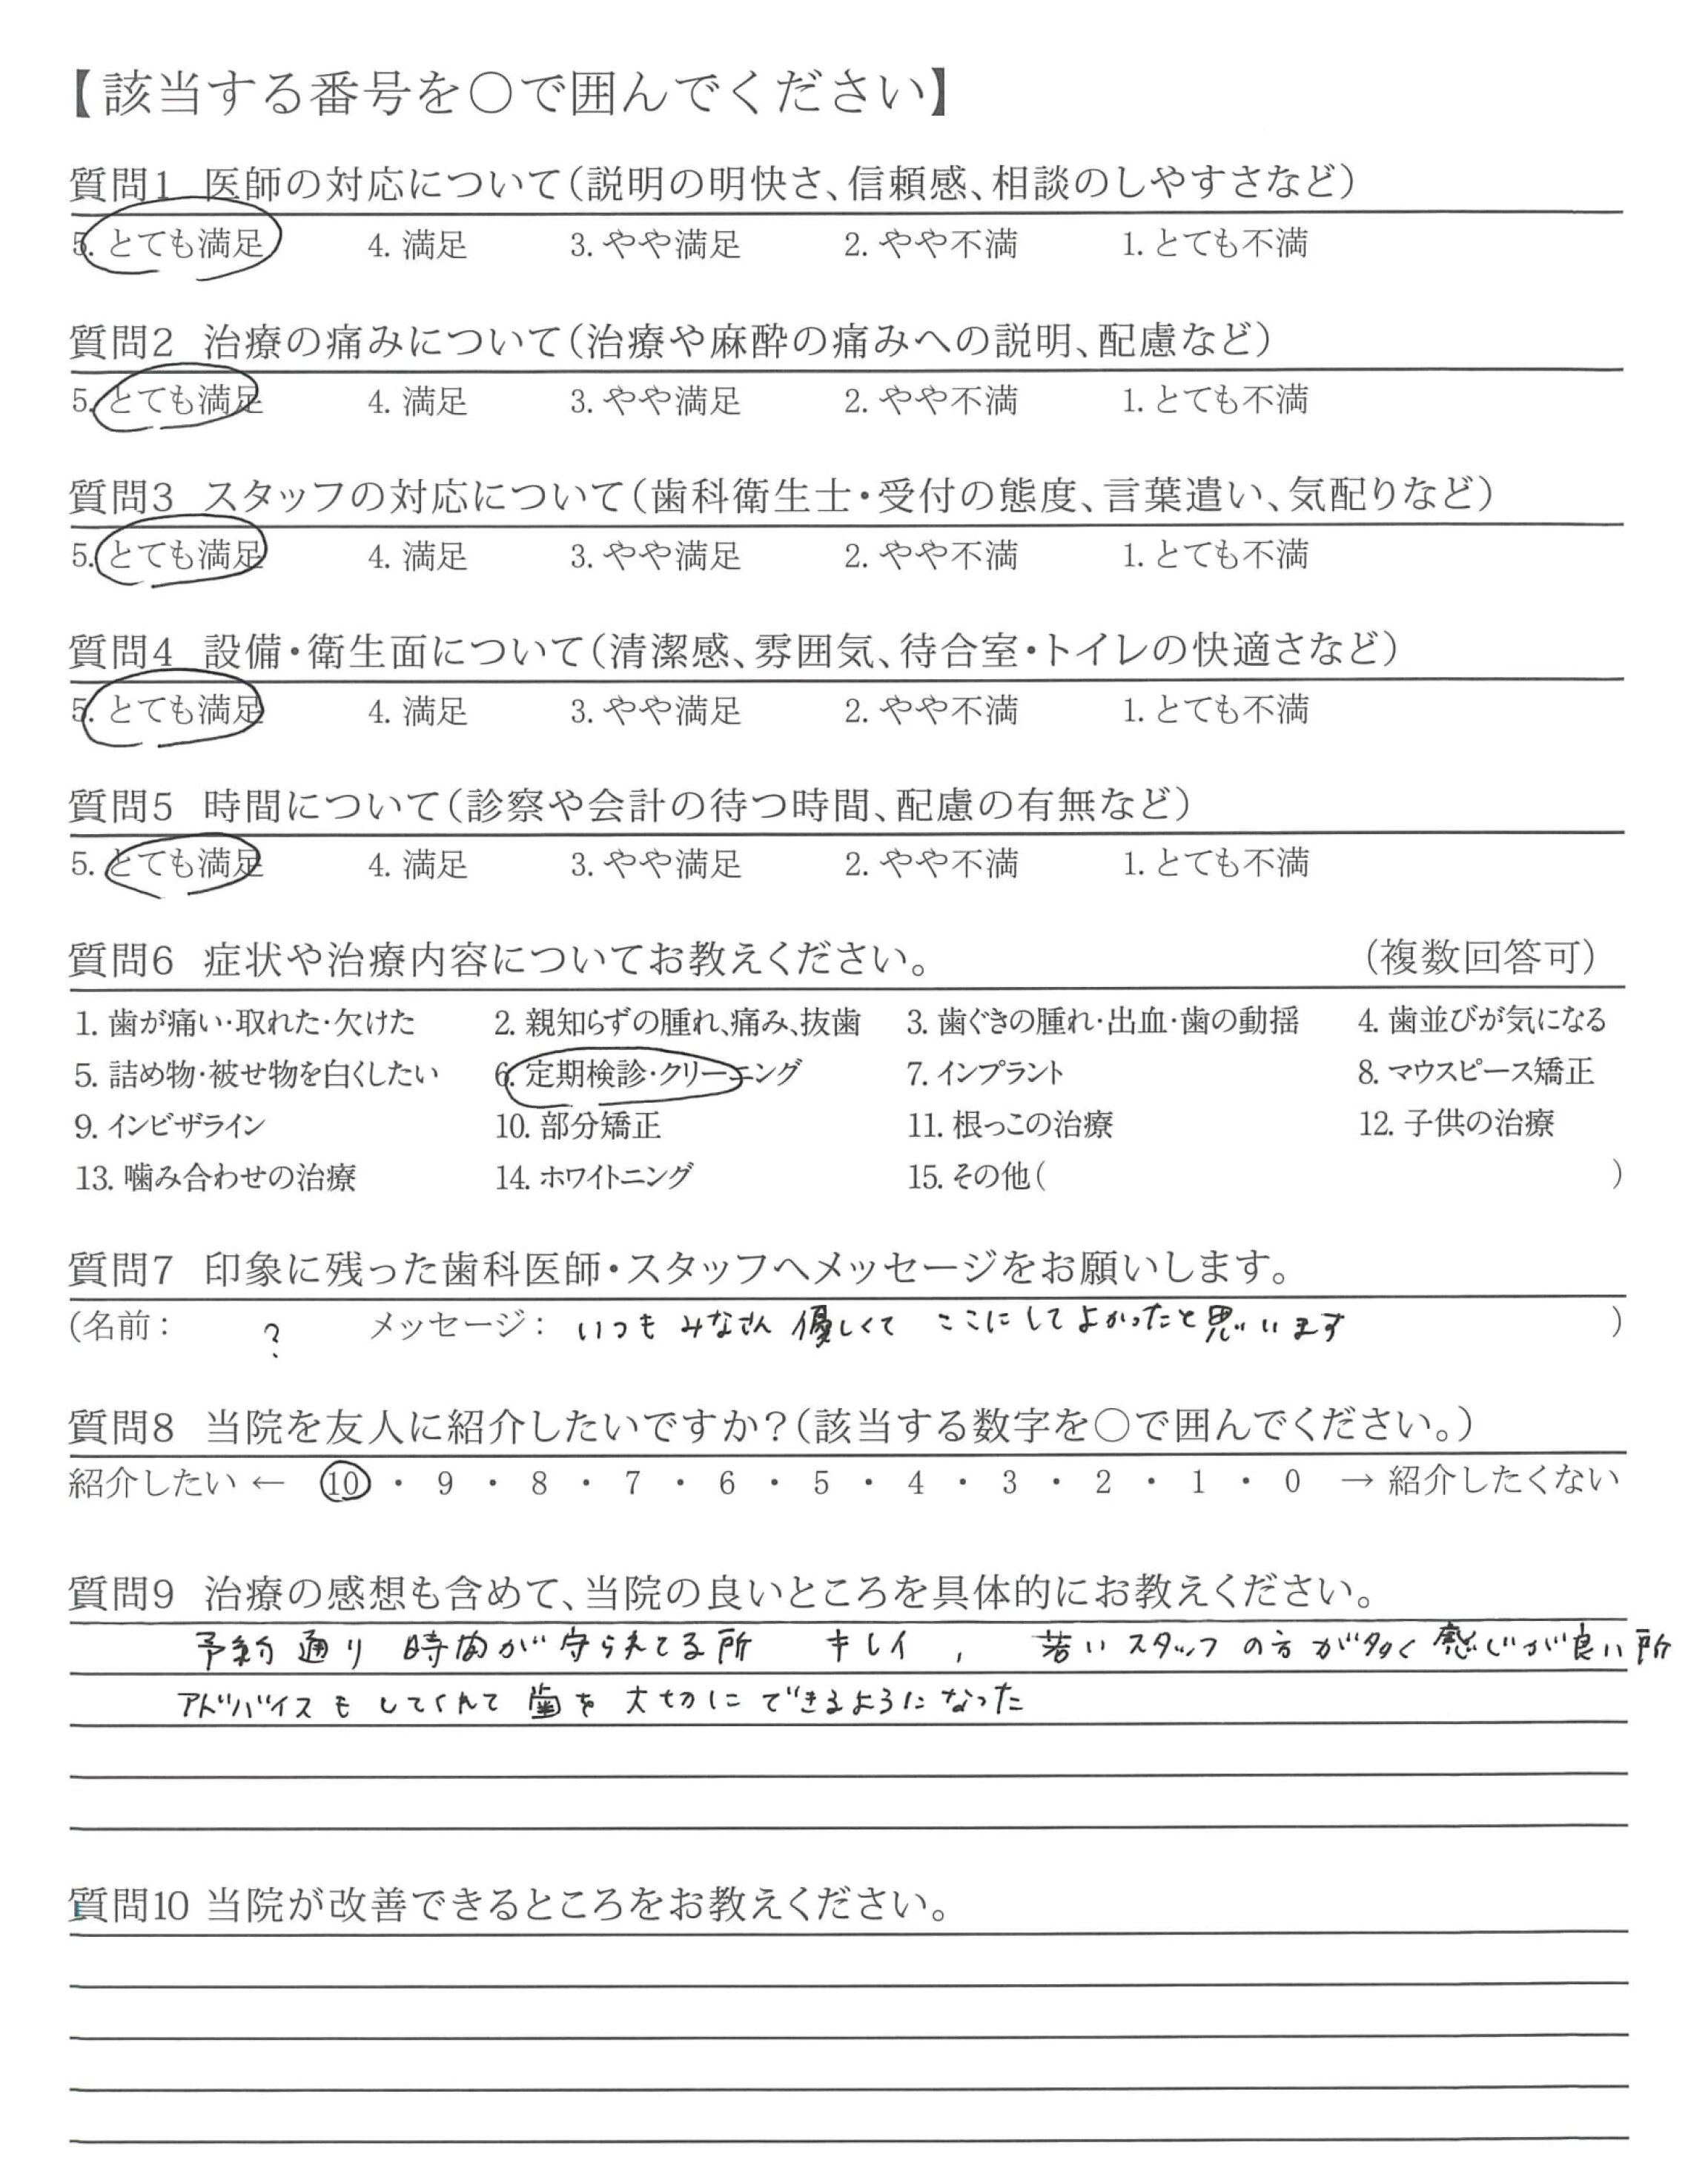 【該当する番号を○で囲んでください】
質問1 医師の対応について(説明の明快さ、信頼感、相談のしやすさなど)
5. とても満足 4. 満足 3. やや満足 2. やや不満 1. とても不満
質問2 治療の痛みについて(治療や麻酔の痛みへの説明、配慮など)
5. とても満足 4. 満足 3. やや満足 2. やや不満 1. とても不満
質問3 スタッフの対応について(歯科衛生士・受付の態度、言葉遣い、気配りなど)
5. とても満足 4. 満足 3. やや満足 2. やや不満 1. とても不満
質問4 設備・衛生面について(清潔感、雰囲気、待合室・トイレの快適さなど)
5. とても満足 4. 満足 3. やや満足 2. やや不満 1. とても不満
質問5 時間について(診察や会計の待つ時間、配慮の有無など)
5. とても満足 4. 満足 3. やや満足 2. やや不満 1. とても不満
質問6 症状や治療内容についてお教えください。 (複数回答可)
1. 歯が痛い・取れた・欠けた 2. 親知らずの腫れ、痛み、抜歯 3. 歯ぐきの腫れ・出血・歯の動揺 4. 歯並びが気になる
5. 詰め物・被せ物を白くしたい 6. 定期検診・クリーニング 7. インプラント 8. マウスピース矯正
9. インビザライン 10. 部分矯正 11. 根っこの治療 12. 子供の治療
13. 噛み合わせの治療 14. ホワイトニング 15. その他( )
質問7 印象に残った歯科医師・スタッフへメッセージをお願いします。
(名前: ? メッセージ: いつも みなさん 優しくて ここにして よかったと思います )
質問8 当院を友人に紹介したいですか?(該当する数字を○で囲んでください。)
紹介したい ← 10 ・ 9 ・ 8 ・ 7 ・ 6 ・ 5 ・ 4 ・ 3 ・ 2 ・ 1 ・ 0 → 紹介したくない
質問9 治療の感想も含めて、当院の良いところを具体的にお教えください。
予約通り 時間が守られてる所 キレイ, 若いスタッフの方が多く感じが良い所
アドバイスもしてくれて 歯を大切にできるようになった
質問10 当院が改善できるところをお教えください。